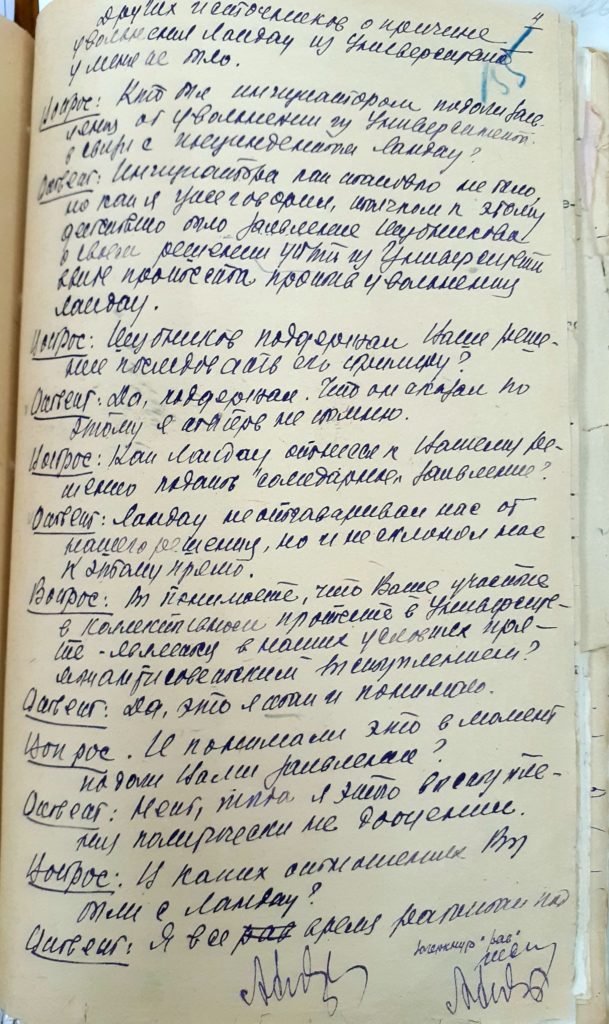 4
других источников о причине
увольнения Ландау из Университета
у меня не было.
Вопрос: Кто был инициатором подачи заяв-
ления от увольнении из Университета
в связи с инцидентом Ландау?
Ответ: Инициатора как такового не было,
но как я уже говорил, толчком к этому
действию было заявление Шубникова
о своем решении уйти из Университета
ввиде протеста против увольнения
Ландау.
Вопрос: Шубников поддержал Ваше реше-
ние последовать его примеру?
Ответ: Да, поддержал. Что он сказал по
этому я сейчас не помню.
Вопрос: Как Ландау отнесся к Вашему ре-
шению подать "солидарное" заявление?
Ответ: Ландау не отговаривал нас от
нашего решения, но и не склонял нас
к этому прямо.
Вопрос: Вы понимаете, что Ваше участие
в коллективном протесте в Университе-
те - является в наших условиях пря-
мым антисоветским выступлением?
Ответ: Да, это я и понимаю.
Вопрос. И понимали это в момент
подачи Вами заявления?
Ответ: Нет, тогда я этого выступле-
ния политически не доценил.
Вопрос: В каких отношениях Вы
были с Ландау?
Ответ: Я все раб время работал под
зачеркнуто "раб"